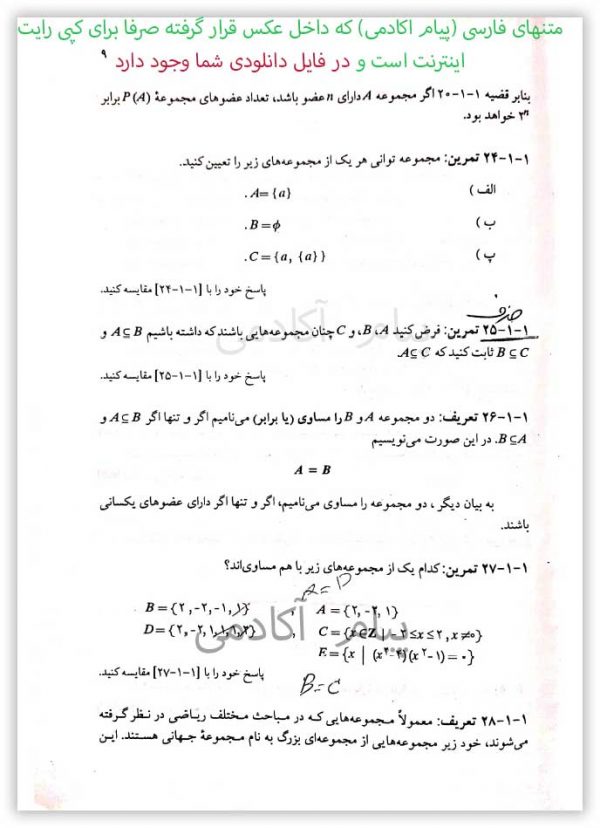 متنهای فارسی (پیام اکادمی) که داخل عکس قرار گرفته صرفا برای کپی رایت
اینترنت است و در فایل دانلودی شما وجود دارد
۹
بنابر قضیه ۱-۱-۲۰ اگر مجموعه A دارای n عضو باشد، تعداد عضوهای مجموعهٔ P(A) برابر
۲ⁿ خواهد بود.
۱-۱-۲۴ تمرین: مجموعه توانی هر یک از مجموعه‌های زیر را تعیین کنید.
الف) A={a}.
ب) B=ϕ.
پ) C={a, {a}}.
پاسخ خود را با [۱-۱-۲۴] مقایسه کنید.
حذف
۱-۱-۲۵ تمرین: فرض کنید A، B، و C چنان مجموعه‌هایی باشند که داشته باشیم A⊆B و
B⊆C ثابت کنید که A⊆C.
پاسخ خود را با [۱-۱-۲۵] مقایسه کنید.
پیام آکادمی
۱-۱-۲۶ تعریف: دو مجموعه A و B را مساوی (یا برابر) می‌نامیم اگر و تنها اگر A⊆B و
B⊆A. در این صورت می‌نویسیم
A = B
به بیان دیگر، دو مجموعه را مساوی می‌نامیم، اگر و تنها اگر دارای عضوهای یکسانی
باشند.
۱-۱-۲۷ تمرین: کدام یک از مجموعه‌های زیر با هم مساوی‌اند؟
A=D
B={۲,-۲,-۱,۱} , A={۲,-۲,۱}
D={۲,-۲,۱,۱,۱,۲} , C={x∈Z | -۲≤x≤۲, x≠۰}
E={x | (x²-۴)(x²-۱)=۰}
پیام آکادمی
پاسخ خود را با [۱-۱-۲۷] مقایسه کنید.
B=C
۱-۱-۲۸ تعریف: معمولاً مجموعه‌هایی که در مباحث مختلف ریاضی در نظر گرفته
می‌شوند، خود زیر مجموعه‌هایی از مجموعه‌ای بزرگ به نام مجموعهٔ جهانی هستند. این